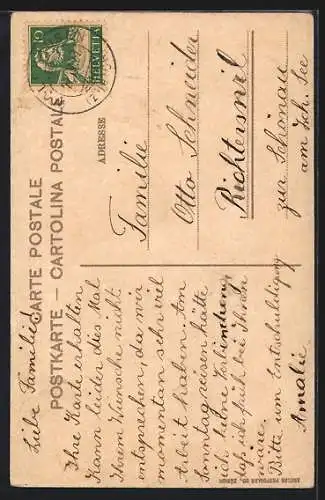 CARTE POSTALE
POSTKARTE — CARTOLINA POSTALE
10
HELVETIA
ADRESSE
Familie
Otto Schneider
Richterswil
zur Schönau
am Zch. See
Liebe Familie!
Ihre Karte erhalten
Kann leider dies Mal
Ihrem Wunsche nicht
entsprechen, da wir
momentan sehr viel
Arbeit haben. Am
Sonntag hätte
ich keine
daß ich früh bei Ihnen
wäre.
Bitte um Entschuldigung
Amalie
ZÜRICH